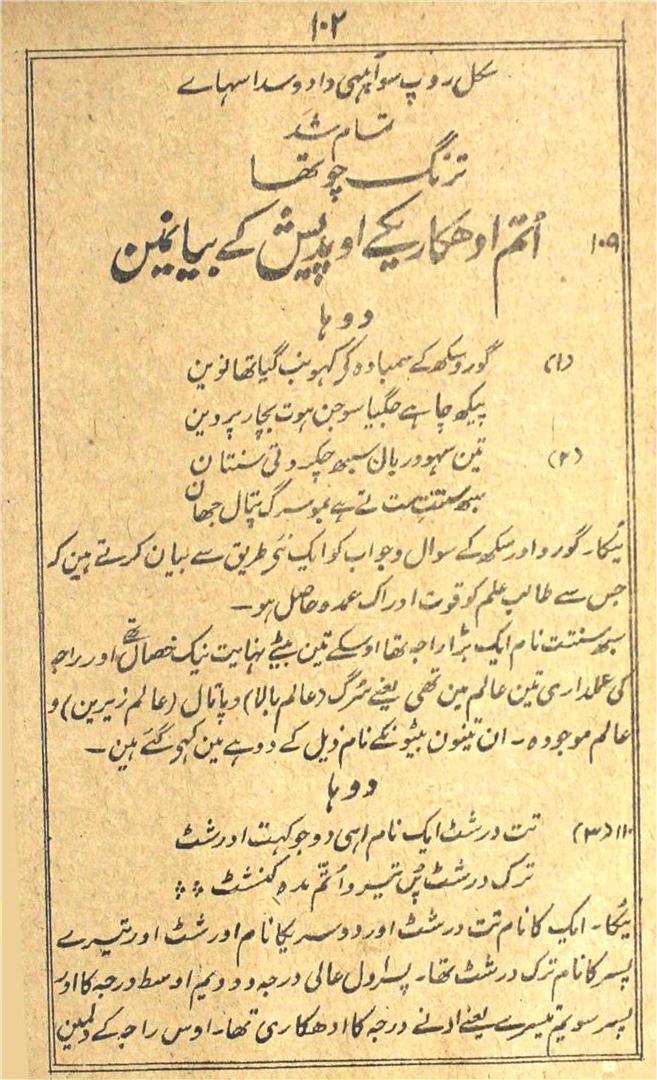 ۱۰۲
سکل روپ سو آہسی دادو سدا سہاے
تمام شد
ترنگ چوتھا
۱۰۹ اُتم ادھکاریکے اوپدیش کے بیانمین
دوہا
(۱) گورو سکھ کے سمبادہ کر کہو نب گیا تھا نوین
پیکھ چاہے جگیا سو جن ہوت بچار پروین
(۲) تین سہودر بال سبھ چکر وتی سنتان
سبھ سنتت پت تے ہے نمو سرگ پتال جھان
ٹیکا۔ گورو اور سکھ کے سوال وجواب کو ایک نئے طریق سے بیان کرتے ہین کہ
جس سے طالب علم کو قوت ادراک عمدہ حاصل ہو۔
سبھ سنتت نام ایک بڑا راجہ تھا اوسکے تین بیٹے نہایت نیک خصال تھے اور راجہ
کی عملداری تین عالم مین تھی یعنے سُرگ (عالم بالا) و پاتال (عالم زیرین) و
عالم موجودہ۔ ان تینون بیٹونکے نام ذیل کے دوہے مین کہی گئے ہین۔
دوہا
۱۱۰ (۳) تت درشٹ ایک نام اہی دوجو کہت ادرشٹ
ترک درشٹ پُن تیسرو اُتم مدہ کنشٹ
ٹیکا۔ ایک کا نام تت درشٹ اور دوسریکا نام ادرشٹ اور تیسرے
پسر کا نام ترک درشٹ تھا۔ پسر اول عالی درجہ و دویم اوسط درجہ کا اور
پسر سویم تیسرے یعنے ادنے درجہ کا ادھکاری تھا۔ اوس راجہ کے دلمین